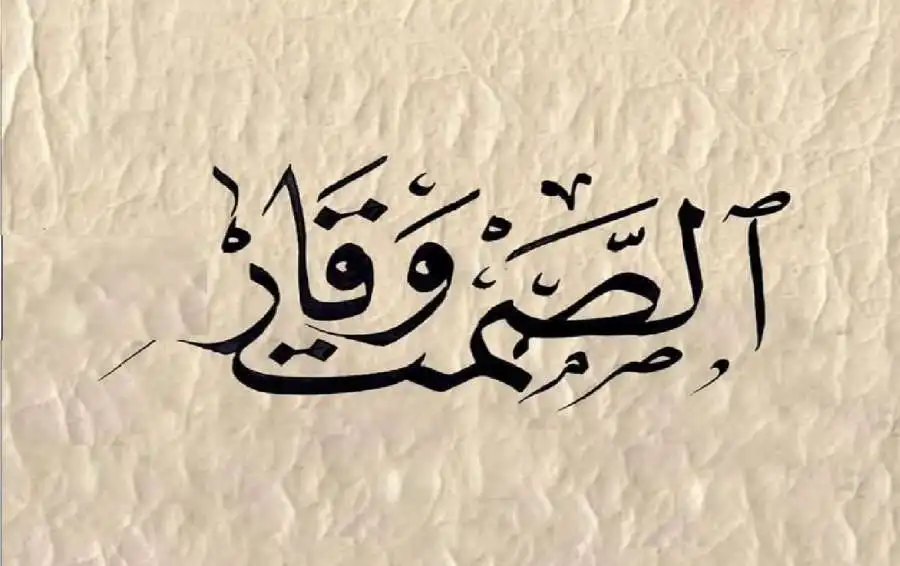 ٱلصَّمْت وَقَار